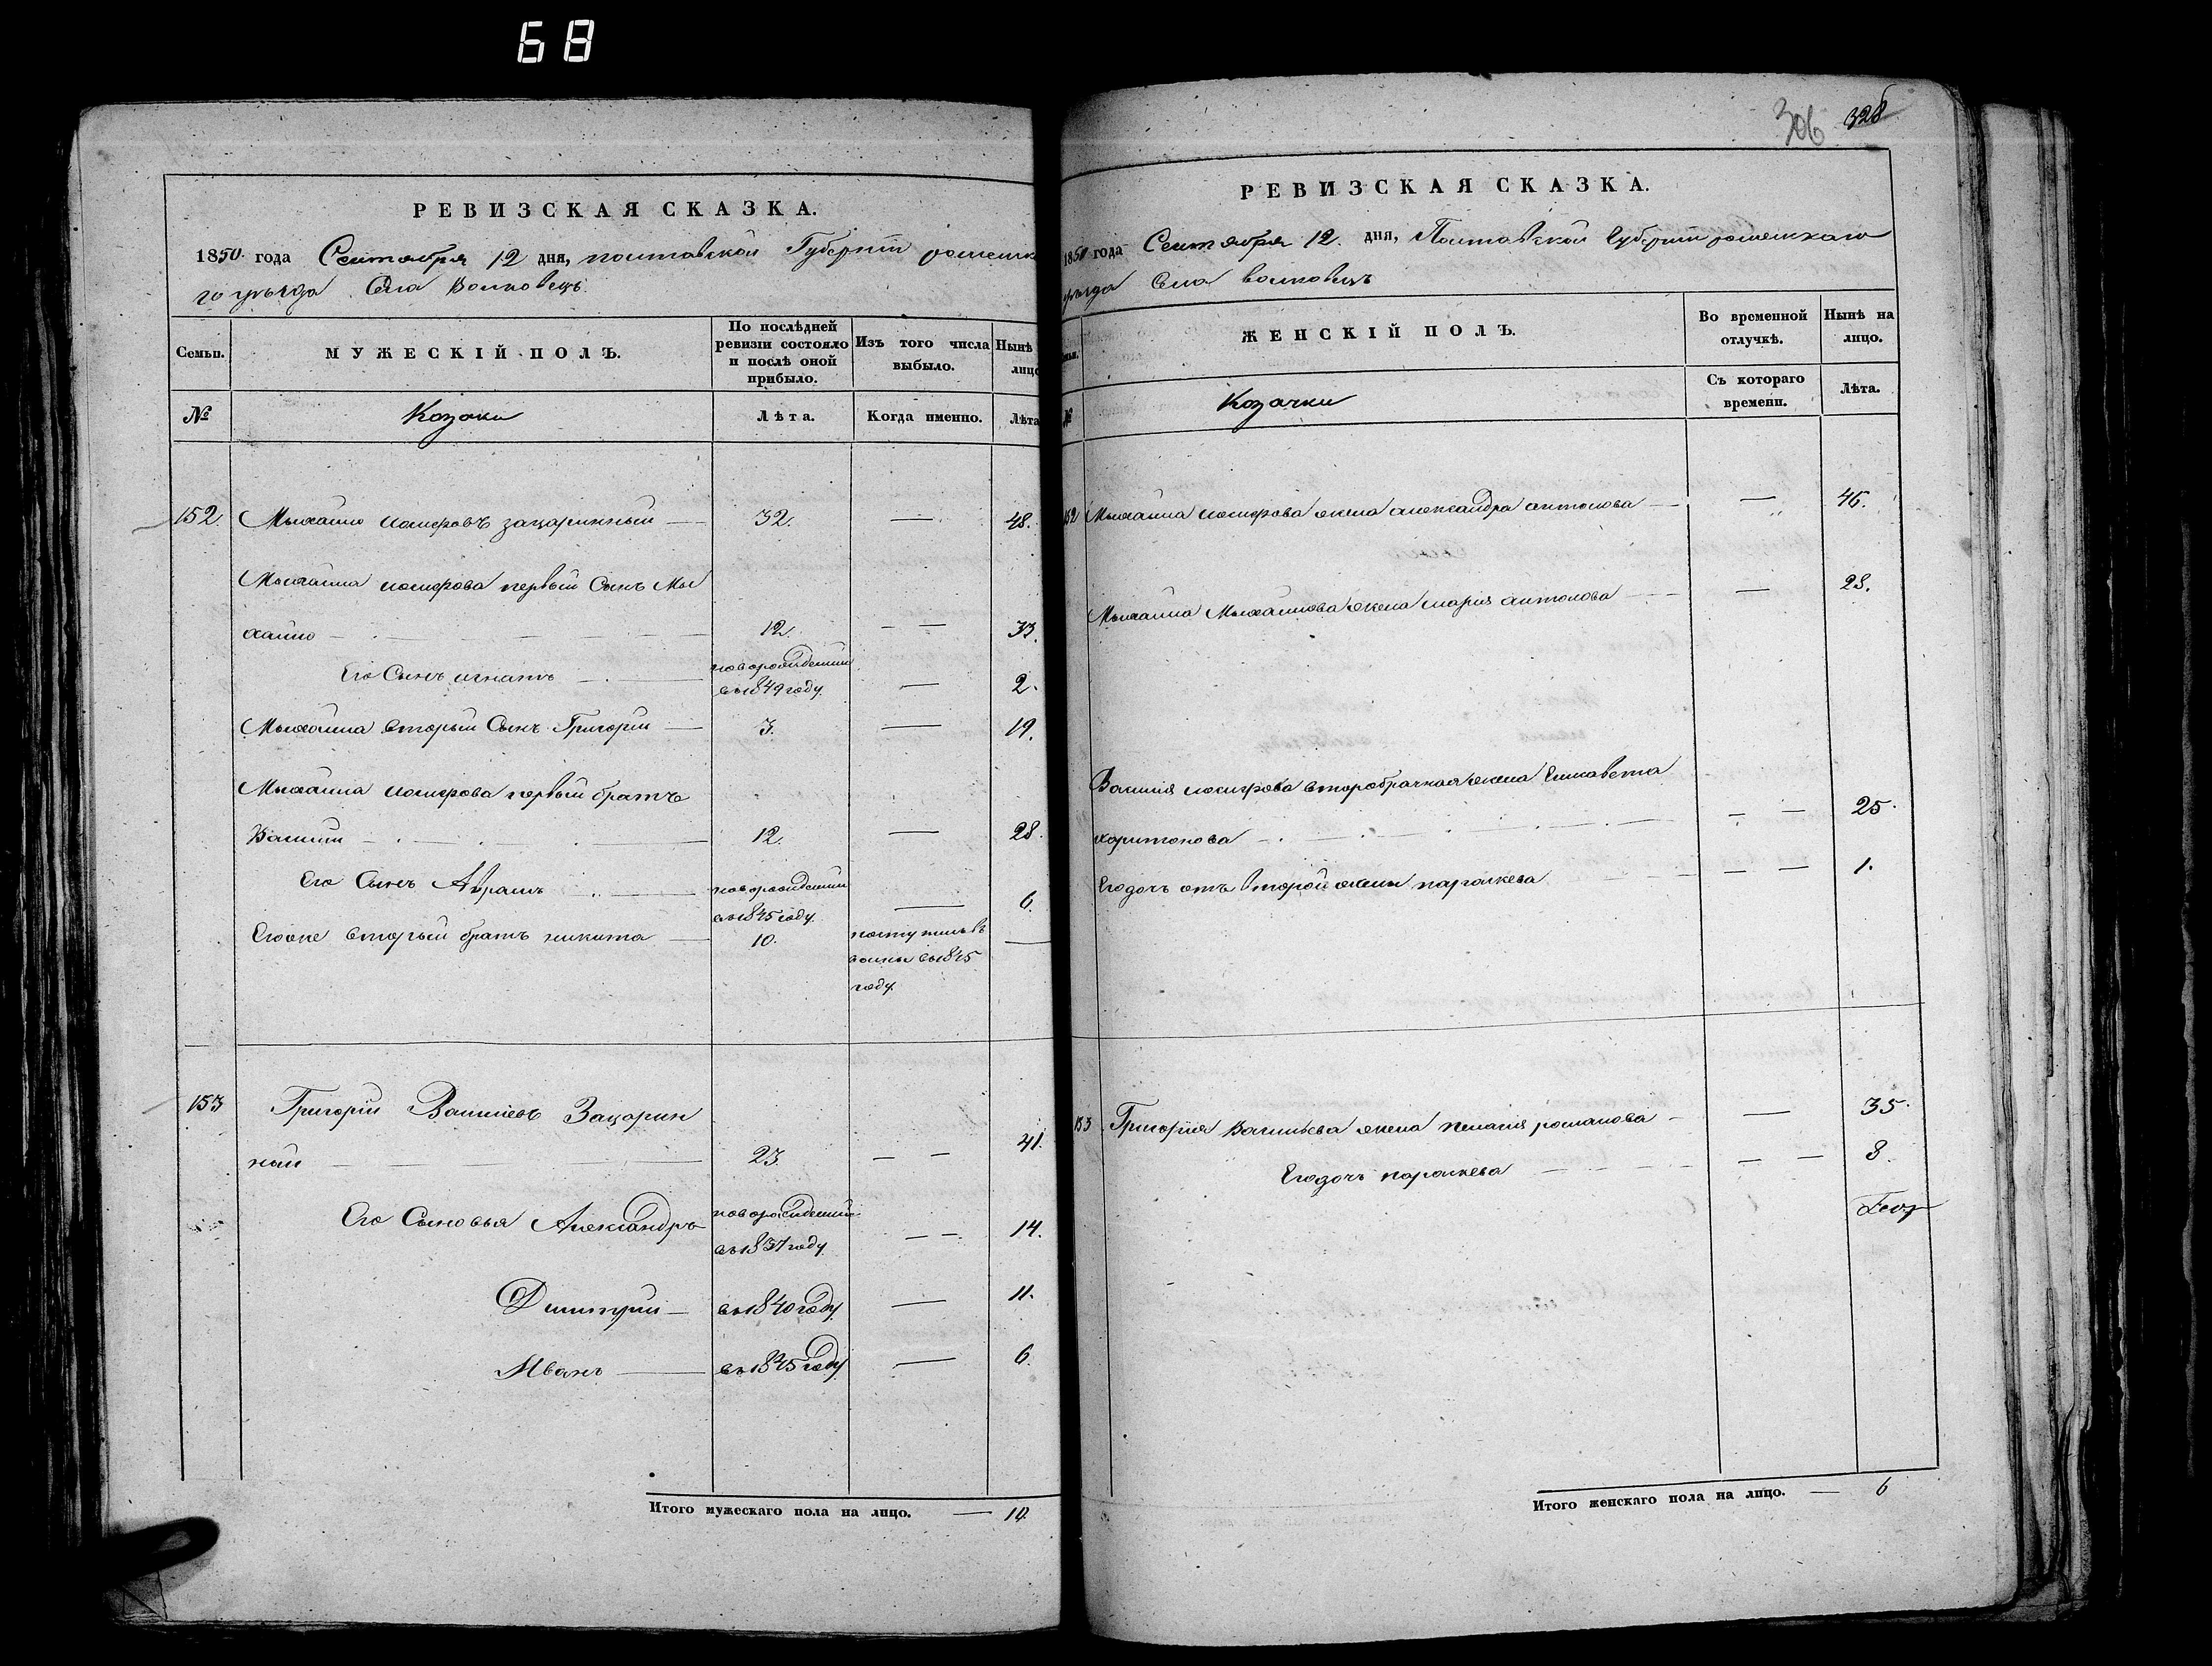 68
РЕВИЗСКАЯ СКАЗКА.
1850 года Сентября 12 дня, полтавской Губерніи роменска
го уезда Села Волковецъ
Семьи.
МУЖЕСКІЙ ПОЛЪ.
По послѣдней ревизіи состояло и послѣ оной прибыло.
Изъ того числа выбыло.
Нынѣ лицо
№
Козаки
Лѣта.
Когда именно.
Лѣта
152. Михайло иосифовъ зацаринный — 32. — 48.
Михаила иосифова первый Сынъ Ми
хайло — 12. — — 33.
Его Сынъ игнатъ — новорожденный
въ 1849 году. — 2.
Михаила вторый Сынъ Григорій — 3. — 19.
Михаила иосифова первый братъ
Василій — 12. — 28.
Его Сынъ Аврамъ — новорожденный
въ 1845 году. — 6.
Егоже вторый братъ никита — 10. поступилъ въ
въ 1845
году.
153 Григорій Василіевъ Зацарин
ный — 23. — — 41.
Его Сыновья Александръ новорожденный
въ 1837 году. — — 14.
Димитрій — въ 1840 году — 11.
Иванъ — въ 1845 году — 6.
Итого мужескаго пола на лицо. — 10.
306 328
РЕВИЗСКАЯ СКАЗКА.
1850 года Сентября 12. дня, Полтавской Губерніи роменскаго
уезда Села волковецъ
ЖЕНСКІЙ ПОЛЪ.
Во временной отлучкѣ.
Нынѣ на лицо.
№
Козачки
Съ котораго времени.
Лѣта.
152 Михаила иосифова жена александра антонова — — 46.
Михаила Михайлова жена марія антонова — — 28.
Василія иосифова второбрачная жена Елисавета
харитонова — — — 25.
Его дочь отъ второй жены параскева — — — 1.
153 Григорія Василіева жена пелагія романова — — 35.
Его дочь параскева — — — 8.
Итого женскаго пола на лицо. — 6